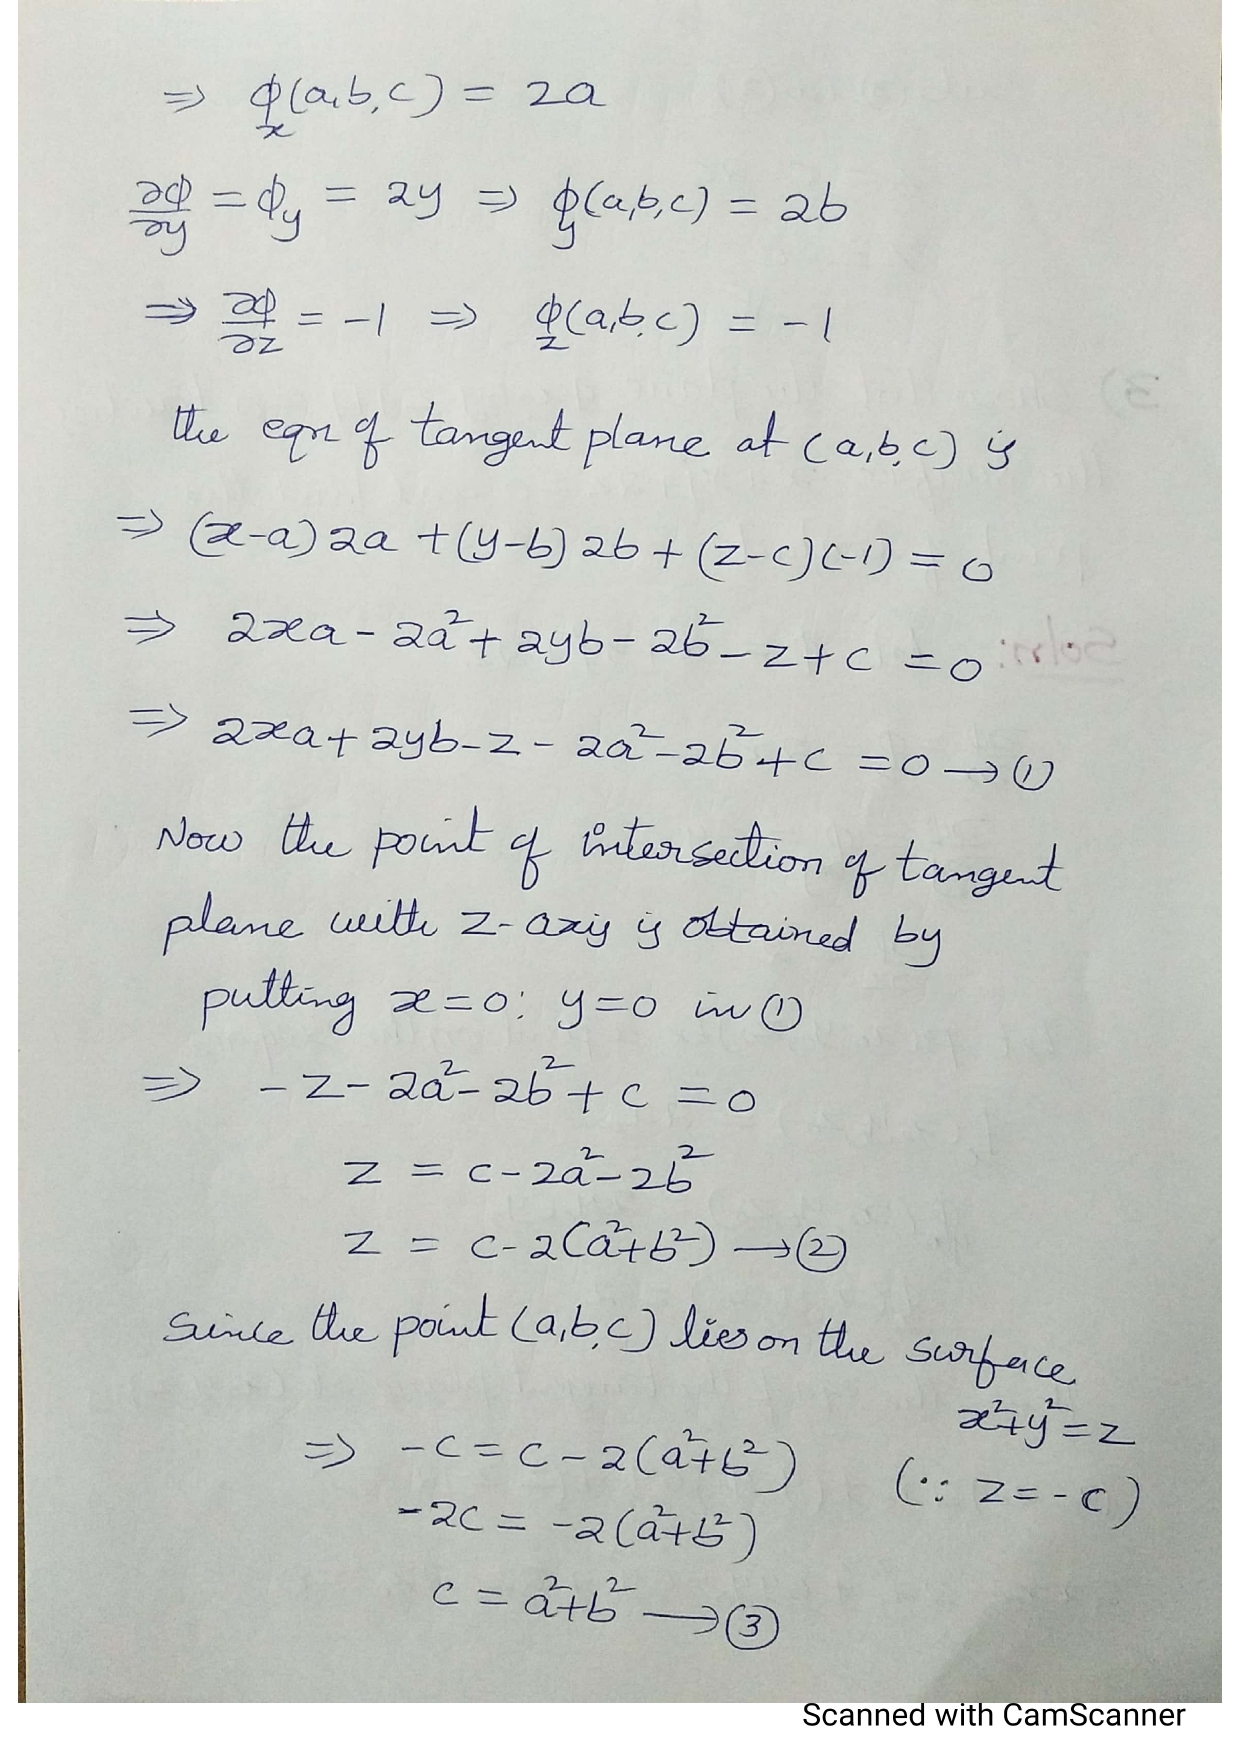 ⇒ ϕₓ(a,b,c) = 2a
∂ϕ/∂y = ϕ_y = 2y ⇒ ϕ_y(a,b,c) = 2b
⇒ ∂ϕ/∂z = -1 ⇒ ϕ_z(a,b,c) = -1
the eqn of tangent plane at (a,b,c) is
⇒ (x-a)2a + (y-b)2b + (z-c)(-1) = 0
⇒ 2xa - 2a² + 2yb - 2b² - z + c = 0
⇒ 2xa + 2yb - z - 2a² - 2b² + c = 0 → ①
Now the point of intersection of tangent
plane with z-axis is obtained by
putting x=0; y=0 in ①
⇒ -z - 2a² - 2b² + c = 0
z = c - 2a² - 2b²
z = c - 2(a²+b²) → ②
Since the point (a,b,c) lies on the surface
x²+y²=z
⇒ -c = c - 2(a²+b²) (∵ z = -c)
-2c = -2(a²+b²)
c = a²+b² → ③
Scanned with CamScanner